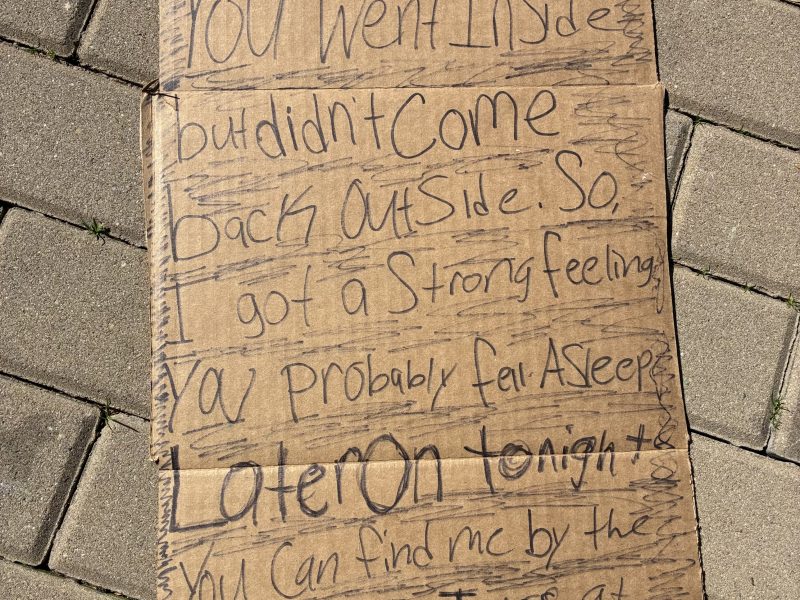 You Went Inside
but didn't Come
back Outside. So,
I got a Strong feeling
You probably fell Asleep
Later On tonight
You Can find me by the
at